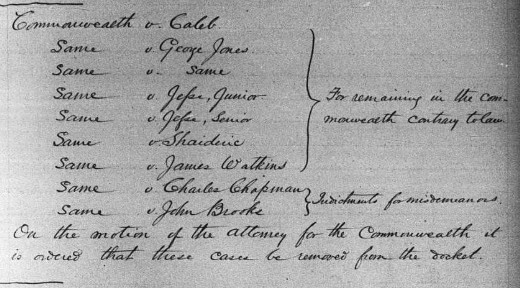 Commonwealth v. Caleb
Same v. George Jones
Same v. Same
Same v. Jesse, Junior
Same v. Jesse, Senior
Same v. Shaideric
Same v. James Watkins
For remaining in the com-
monwealth contrary to law
Same v. Charles Chapman
Same v. John Brooks
Indictments for misdemeanors.
On the motion of the attorney for the Commonwealth it
is ordered that these cases be removed from the docket.